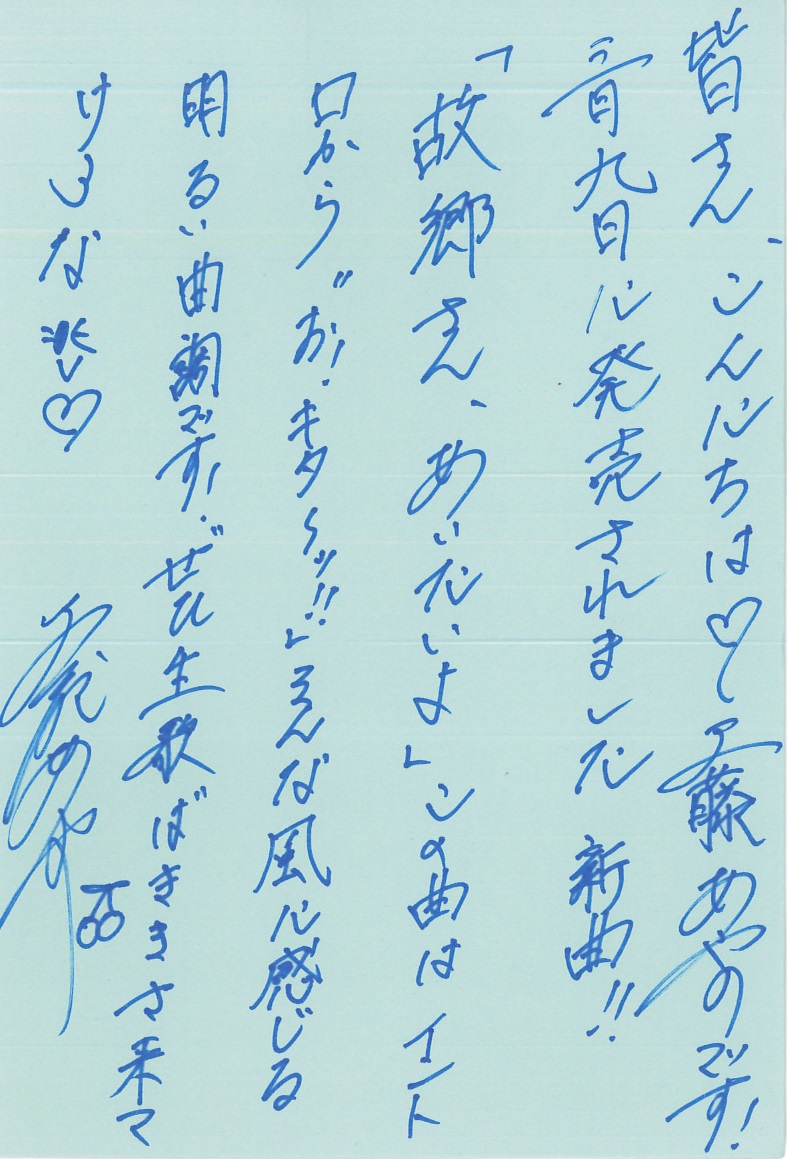 皆さん、こんにちは♡工藤あやのです!
三月九日に発売されました新曲!!
「故郷さん、あいたいよ」この曲はイント
ロから"お!キタ〜ッ!!"そんな風に感じる
明るい曲調です!ぜひ生歌ばききさ来マ
けろな♡
工藤あやの